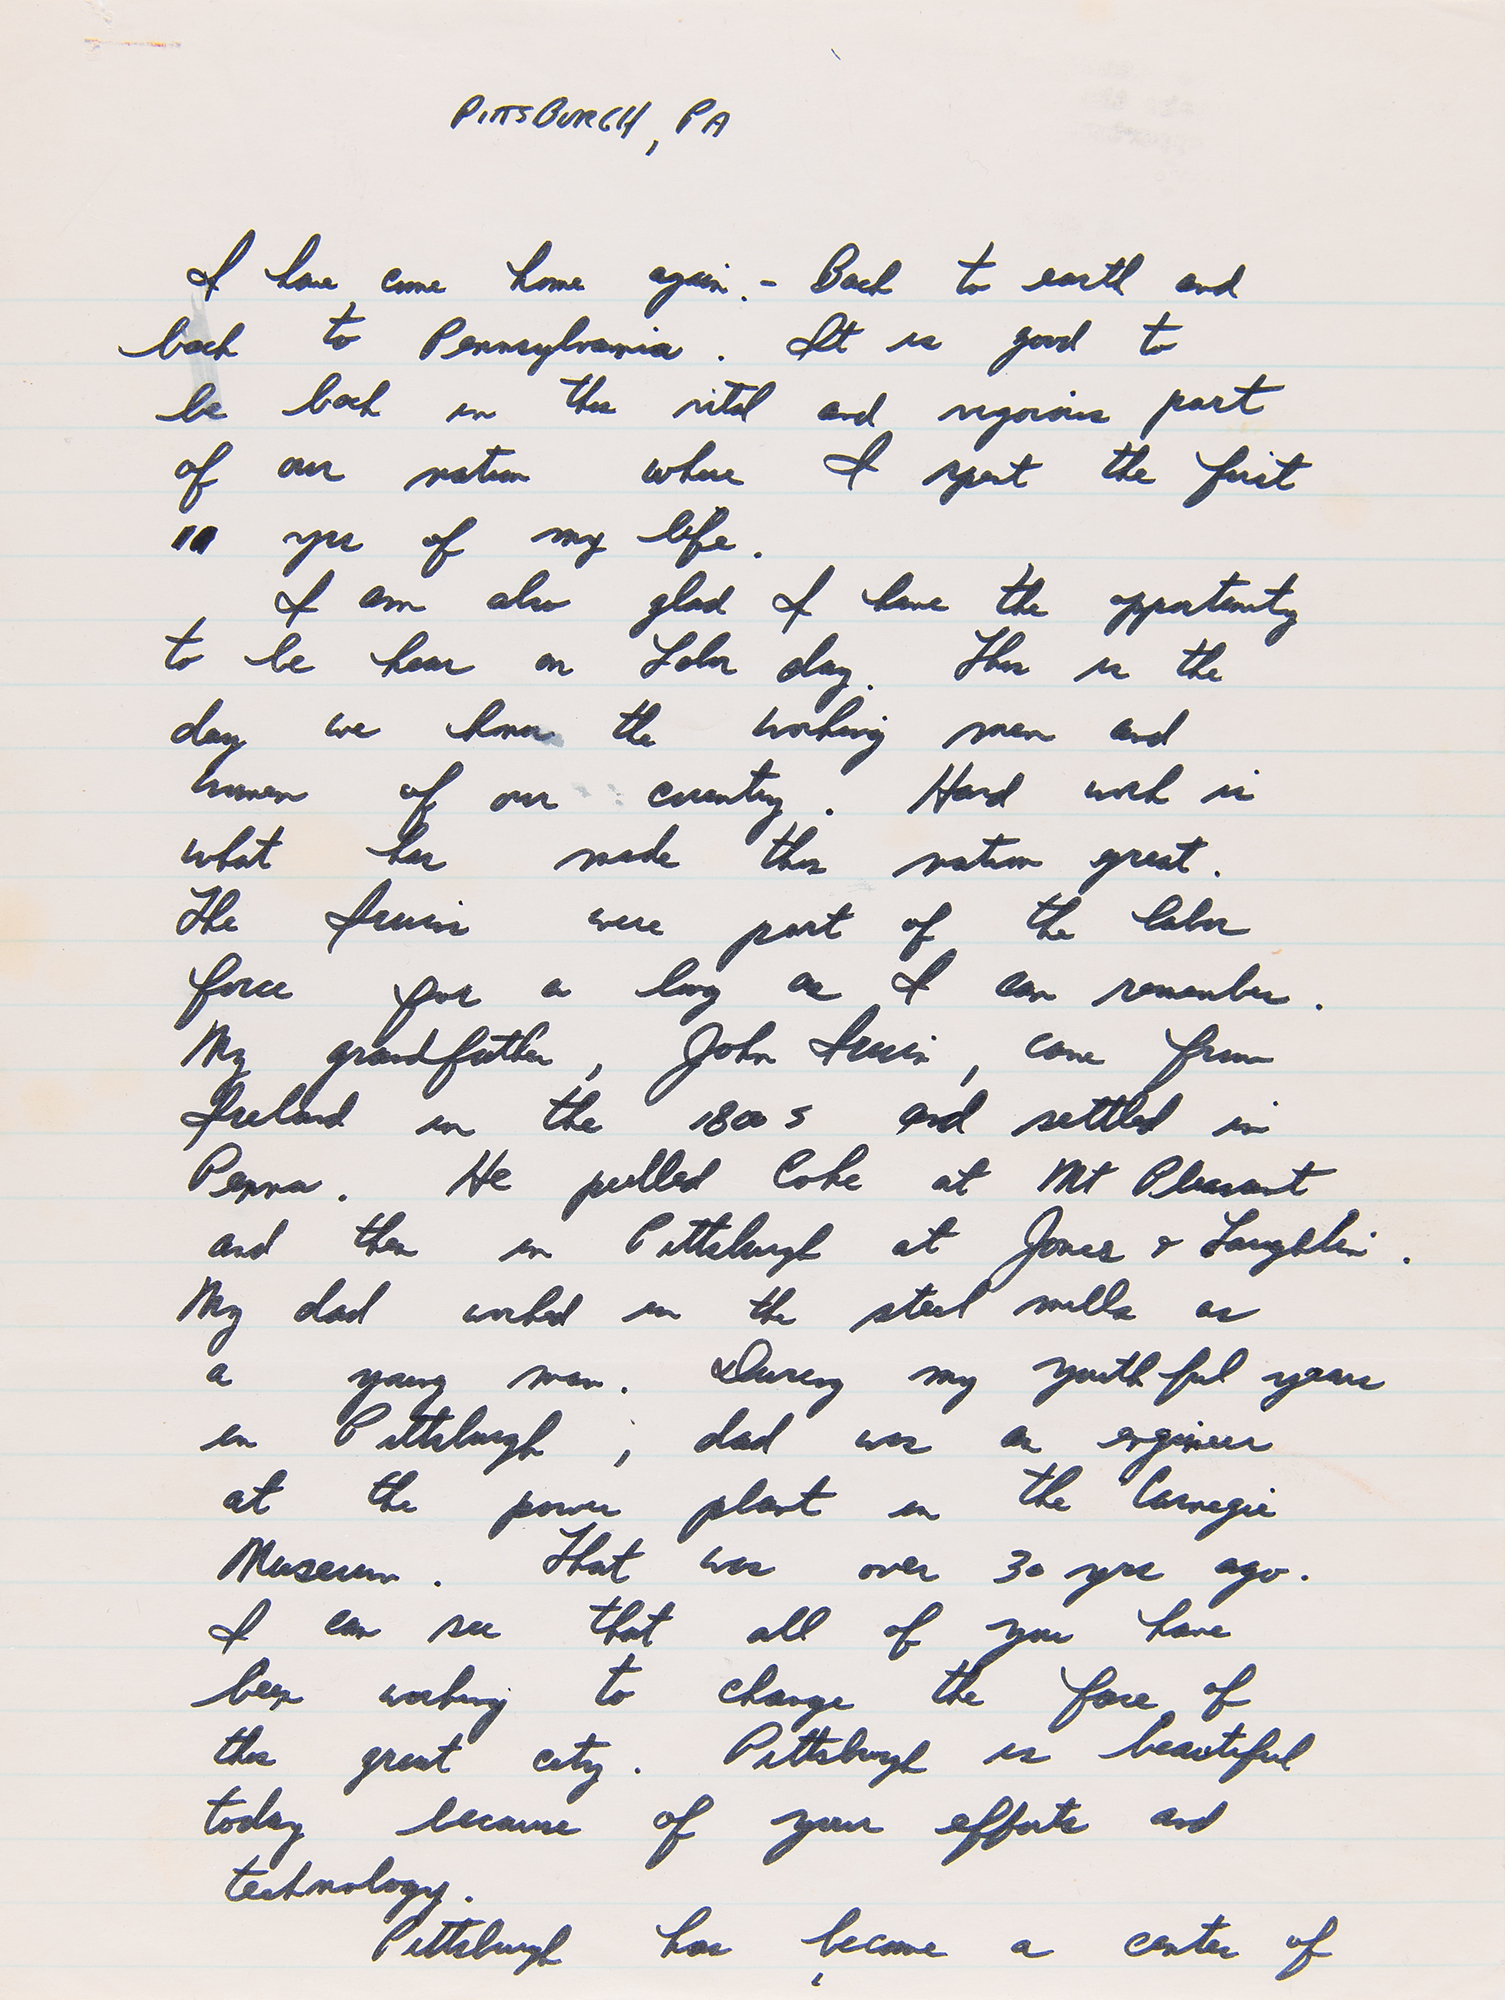 PITTSBURGH, PA
I have come home again. - Back to earth and
back to Pennsylvania. It is good to
be back in this vital and vigorous part
of our nation where I spent the first
yrs of my life.
I am also glad I have the opportunity
to be hear on Labor day. This is the
day we honor the working men and
women of our country. Hard work is
what has made this nation great.
The Irwin were part of the labor
force for a long as I can remember.
My grandfather, John Irwin, came from
Ireland in the 1800s and settled in
Penna. He pulled Coke at Mt Pleasant
and then in Pittsburgh at Jones & Laughlin.
My dad worked in the steel mills as
a young man. During my youthful years
in Pittsburgh, dad was an engineer
at the power plant in the Carnegie
Museum. That was over 30 yrs ago.
I can see that all of you have
been working to change the face of
this great city. Pittsburgh is beautiful
today because of your efforts and
technology.
Pittsburgh has become a center of